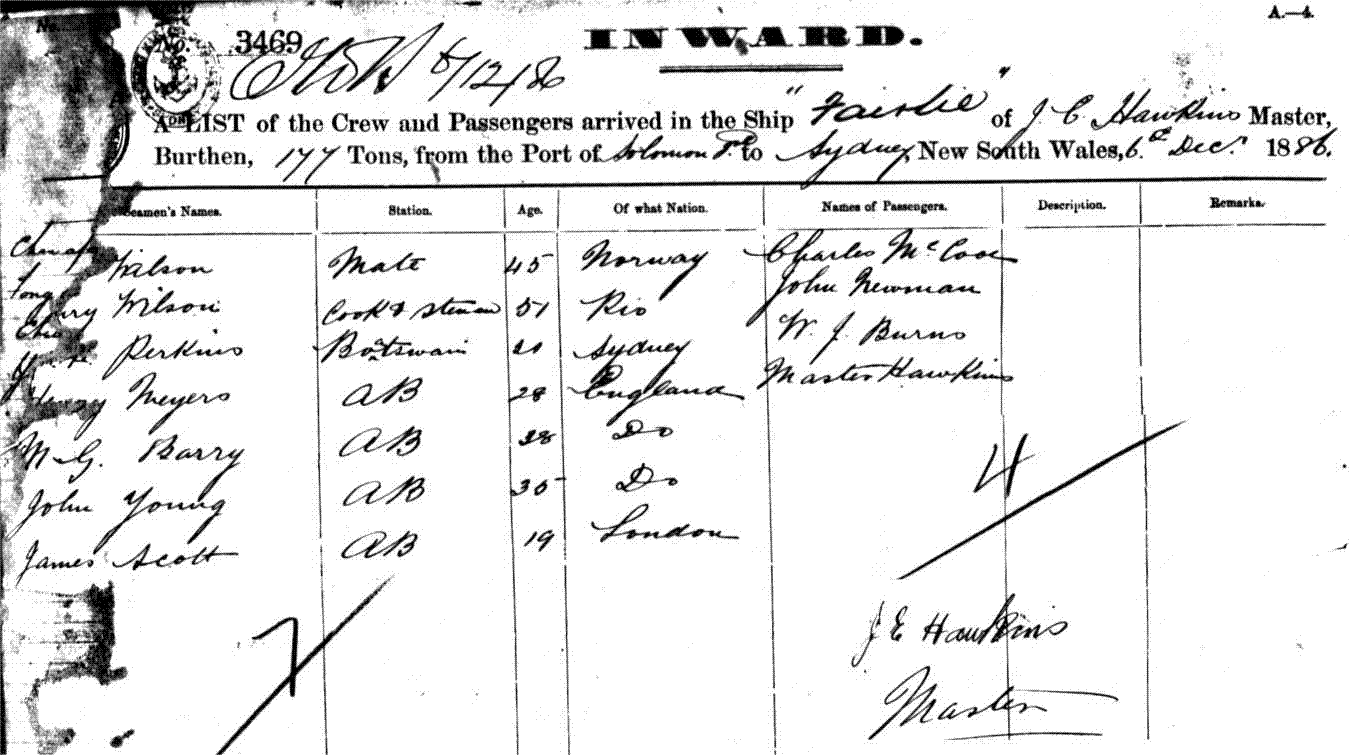 A.—4.
No. 3469
INWARD.
6/12/86
A LIST of the Crew and Passengers arrived in the Ship "Fairlie" of J. C. Hawkins Master,
Burthen, 177 Tons, from the Port of Solomon to Sydney, New South Wales, 6th Decr. 1886.
Seamen's Names. Station. Age. Of what Nation. Names of Passengers. Description. Remarks.
Wilson Mate 45 Norway Charles McCooe
Wilson Cook & Steward 51 Rio John Newman
Perkins Boatswain Sydney W. J. Burns
Henry Meyers AB 28 England Master Hawkins
M. G. Barry AB 38 Do
John Young AB 35 Do
James Scott AB 19 London
4
7
J E Hawkins
Master